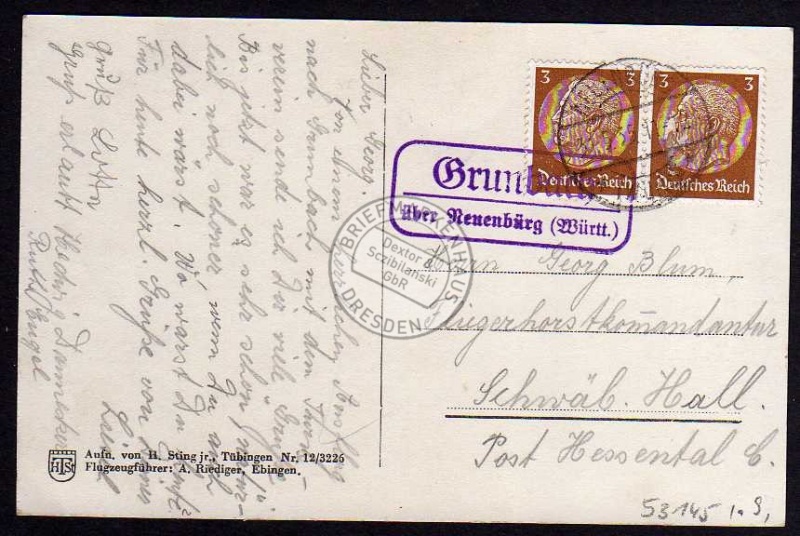 Lieber Georg.
von einem herrlichen Ausflug
nach Grunbach mit dem Turn-
verein sind ich Dir viele Grüße
Bis jetzt war es sehr schön. Natür-
lich noch schöner wenn Du auch
dabei warst. Wo warst Du
Für heute herzl. Grüße von Deiner
Liesel
Gruß Lotte
Gruß erlaubt Hedwig
Ruth Engel
Aufn. von H. Sting jr., Tübingen Nr. 12/3226
Flugzeugführer: A. Riediger, Ebingen.
HSt
3 3
Deutsches Reich
3 3
Deutsches Reich
Grunbach
über Neuenbürg (Württ.)
BRIEFMARKENHAUS
Dextor &
Sczibilanski
GbR
DRESDEN
Herrn Georg Blum,
Fliegerhorstkommandantur
Schwäb. Hall.
Post Hessental
53145